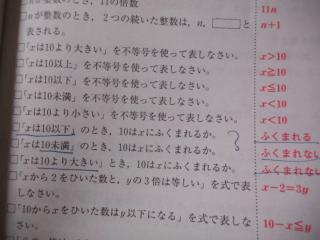 □nが整数のとき、11の倍数 11n
□nが整数のとき、2つの続いた整数は、n、□と n+1
表される。
□「xは10より大きい」を不等号を使って表しなさい。 x>10
□「xは10以上」を不等号を使って表しなさい。 x≧10
□「xは10以下」を不等号を使って表しなさい。 x≦10
□「xは10未満」を不等号を使って表しなさい。 x<10
□「xは10より小さい」を不等号を使って表しなさい。 x<10
□「xは10以下」のとき、10はxにふくまれるか。 ? ふくまれる
□「xは10未満」のとき、10はxにふくまれるか。 ふくまれない
□「xは10より大きい」とき、10はxにふくまれるか。 ふくまれない
□「xから2をひいた数と、yの3倍は等しい」を式で表 x-2=3y
しなさい。
□「10からxをひいた数はy以下になる」を式で表しな 10-x≦y
さい。